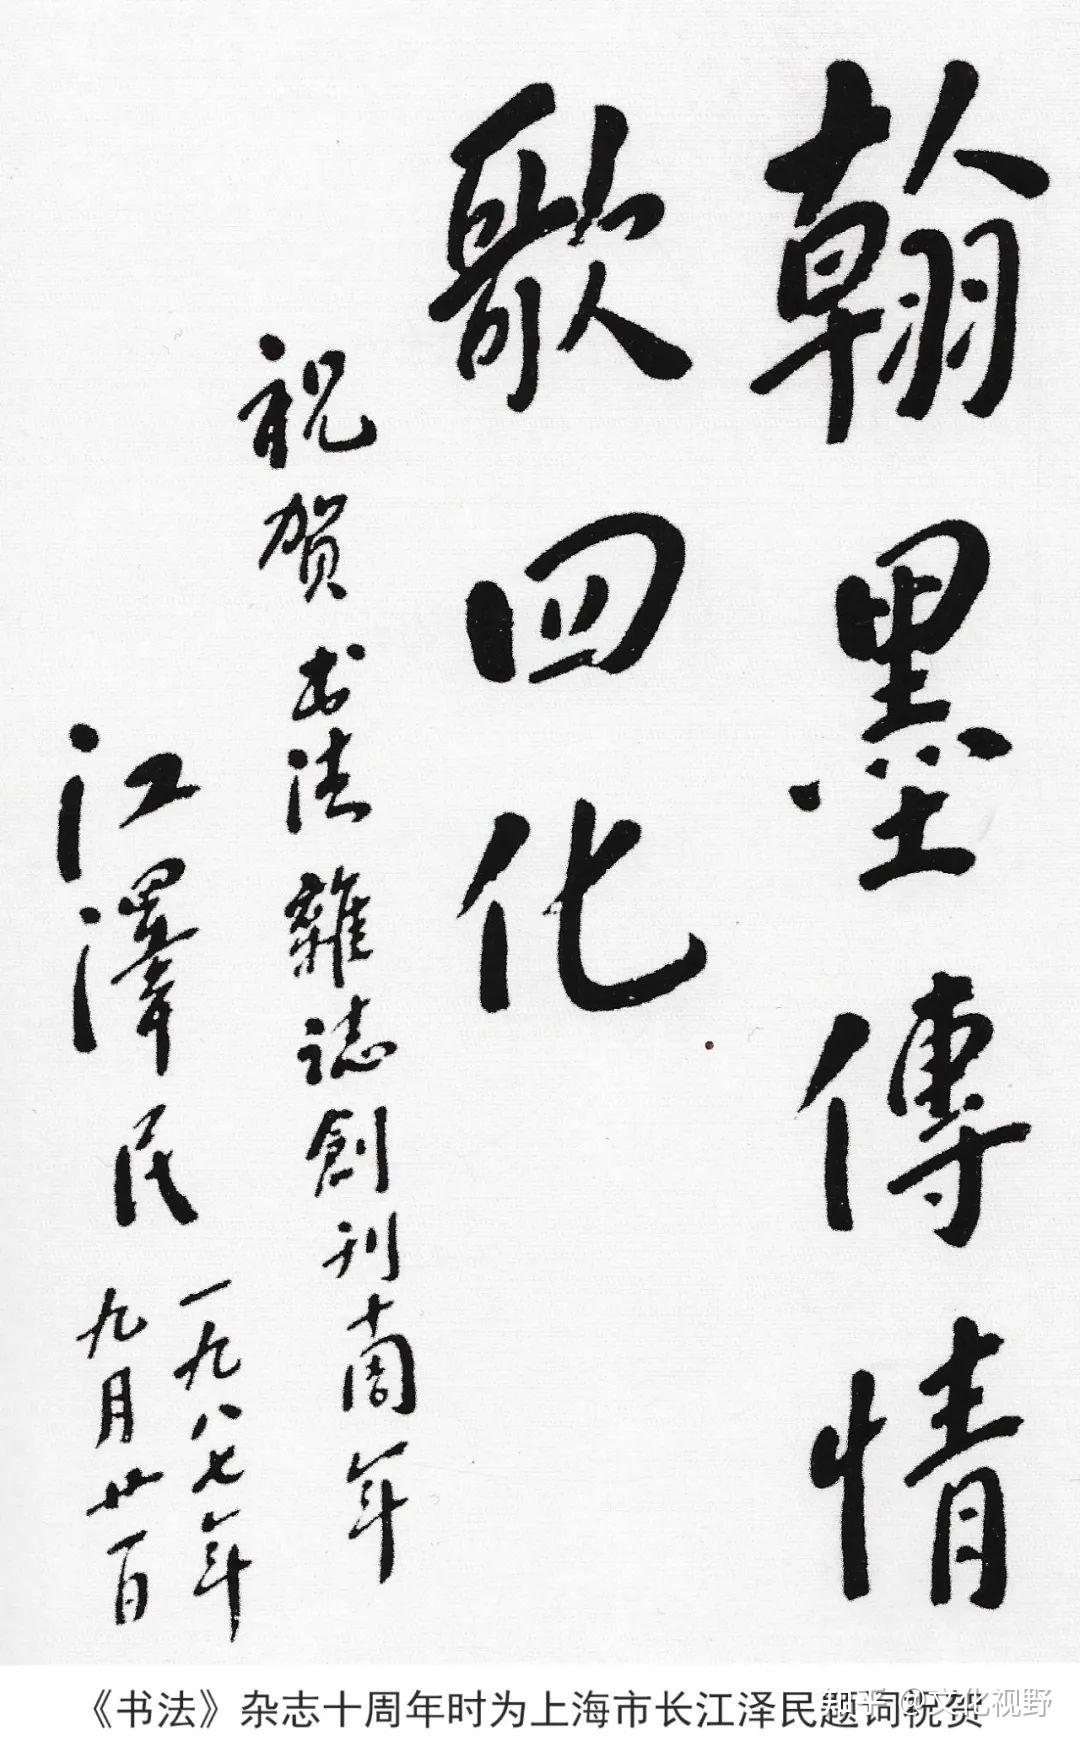 翰墨傳情
歌四化
祝贺书法雜誌創刊十周年
江澤民
一九八七年
九月廿一日
《书法》杂志十周年时为上海市长江泽民题词祝贺
知乎 @文化视野